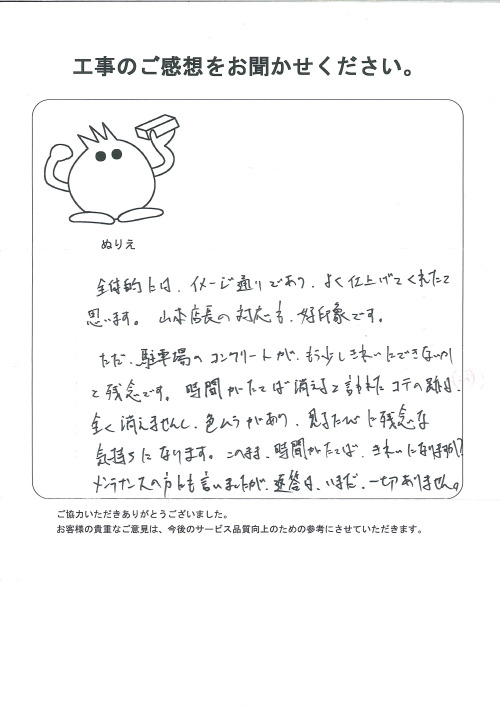 工事のご感想をお聞かせください。
ぬりえ
全体的には、イメージ通りであり、よく仕上げてくれたと
思います。 山本店長の対応も、好印象です。
ただ、駐車場のコンクリートが、もう少しきれいにできないか
と残念です。 時間がたてば消えると言われたコテの跡は、
全く消えませんし、色ムラがあり、見るたびに残念な
気持ちになります。このまま、時間がたてば、きれいになりますか?
メンテナンスの方にも言いましたが、返答は、いまだ、一切ありません。
ご協力いただきありがとうございました。
お客様の貴重なご意見は、今後のサービス品質向上のための参考にさせていただきます。